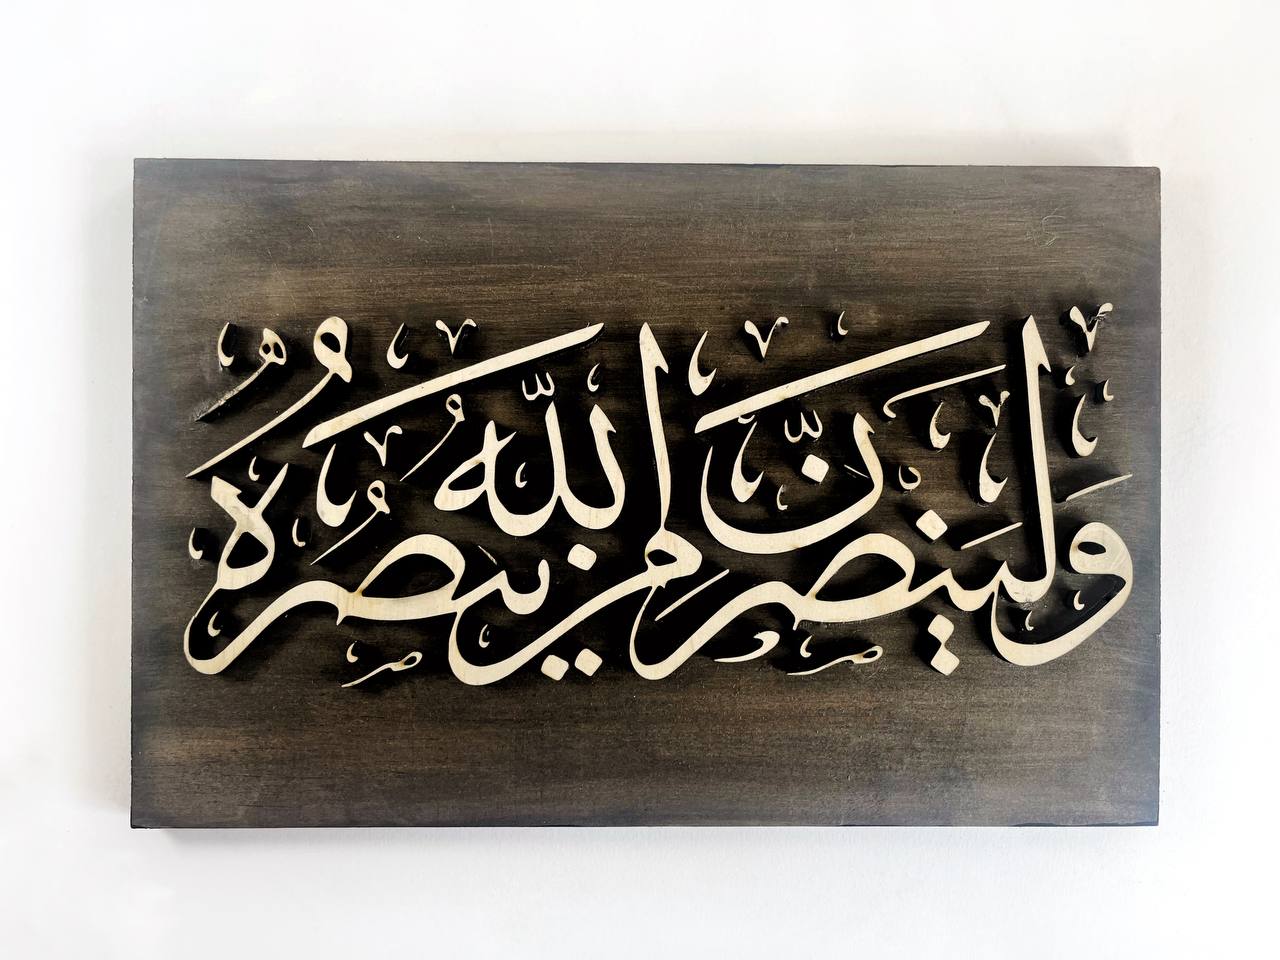 وَلَيَنْصُرَنَّ اللهُ مَنْ يَنْصُرُهُ